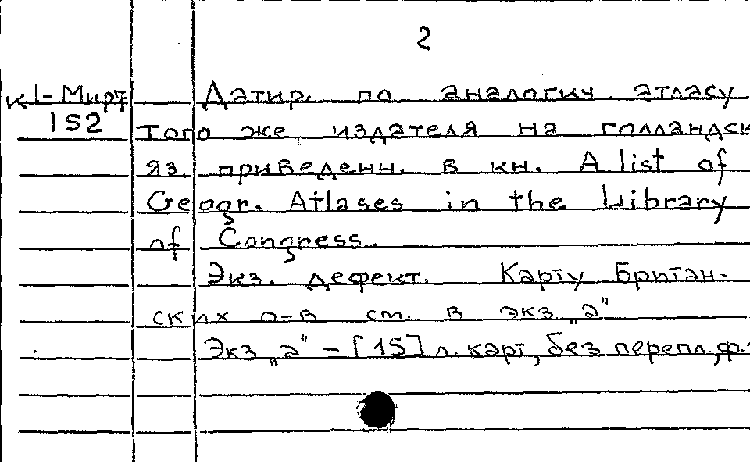 2
К 1-Мирт Датир. по аналогич. атласу
152 того же издателя на голландск
яз. приведенн. в кн. A list of
Geogr. Atlases in the Library
of Congress.
Экз. дефект. Карту Британ-
ских о-в см. в экз. „а"
Экз „а" – [15] л. карт, без перепл., ф.